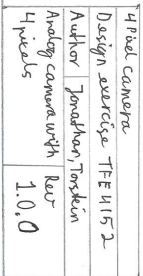 4 Pixel camera
Design exercise TFE4152
Author Jonathan, Torstein
Analog camera with 4 pixels
Rev 1.0.0